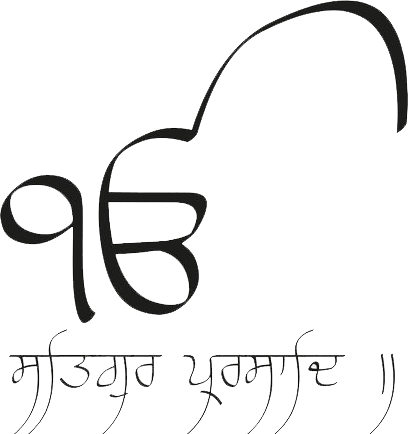 ੴ
ਸਤਿਗੁਰ ਪ੍ਰਸਾਦਿ ॥